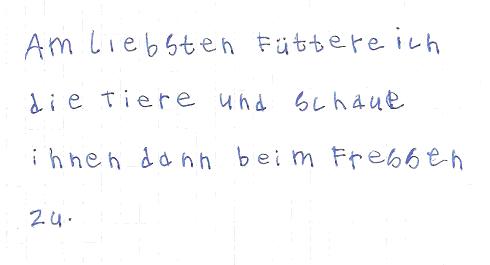 Am liebsten Füttere ich
die tiere und schaue
ihnen dann beim Fressen
zu.